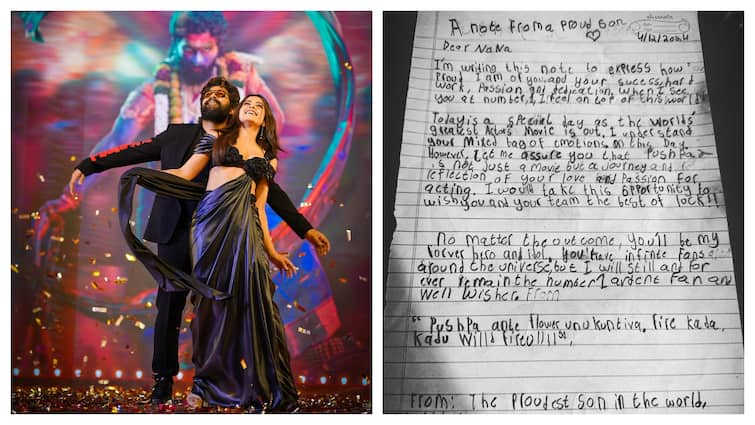 A note from a proud son
4/12/2024
Dear NaNa
I'm writing this note to express how
Proud I am of you and your sucess, hard
work, Passion and dedication, when I see
You at number 1, I feel on top of this world
Today is a special day as the worlds'
greatest Actors Movie is out, I understand
your Mixed bag of emotions on this Day.
However, let me assure you that Pushpa 2
is not just a movie but a journey and
reflection of your love and Passion for
acting. I would take this opportunity to
wish you and your team the best of lock!!
No matter the outcome, You'll be my
forver hero and idol. You have infinite fans
around the universe, but I will still and for
ever remain the number 1 ardent fan and
Well wisher. From
"Pushpa ante flower unukuntiva, fire kada,
kadu Wild fire
From: The Proudest son in the world,